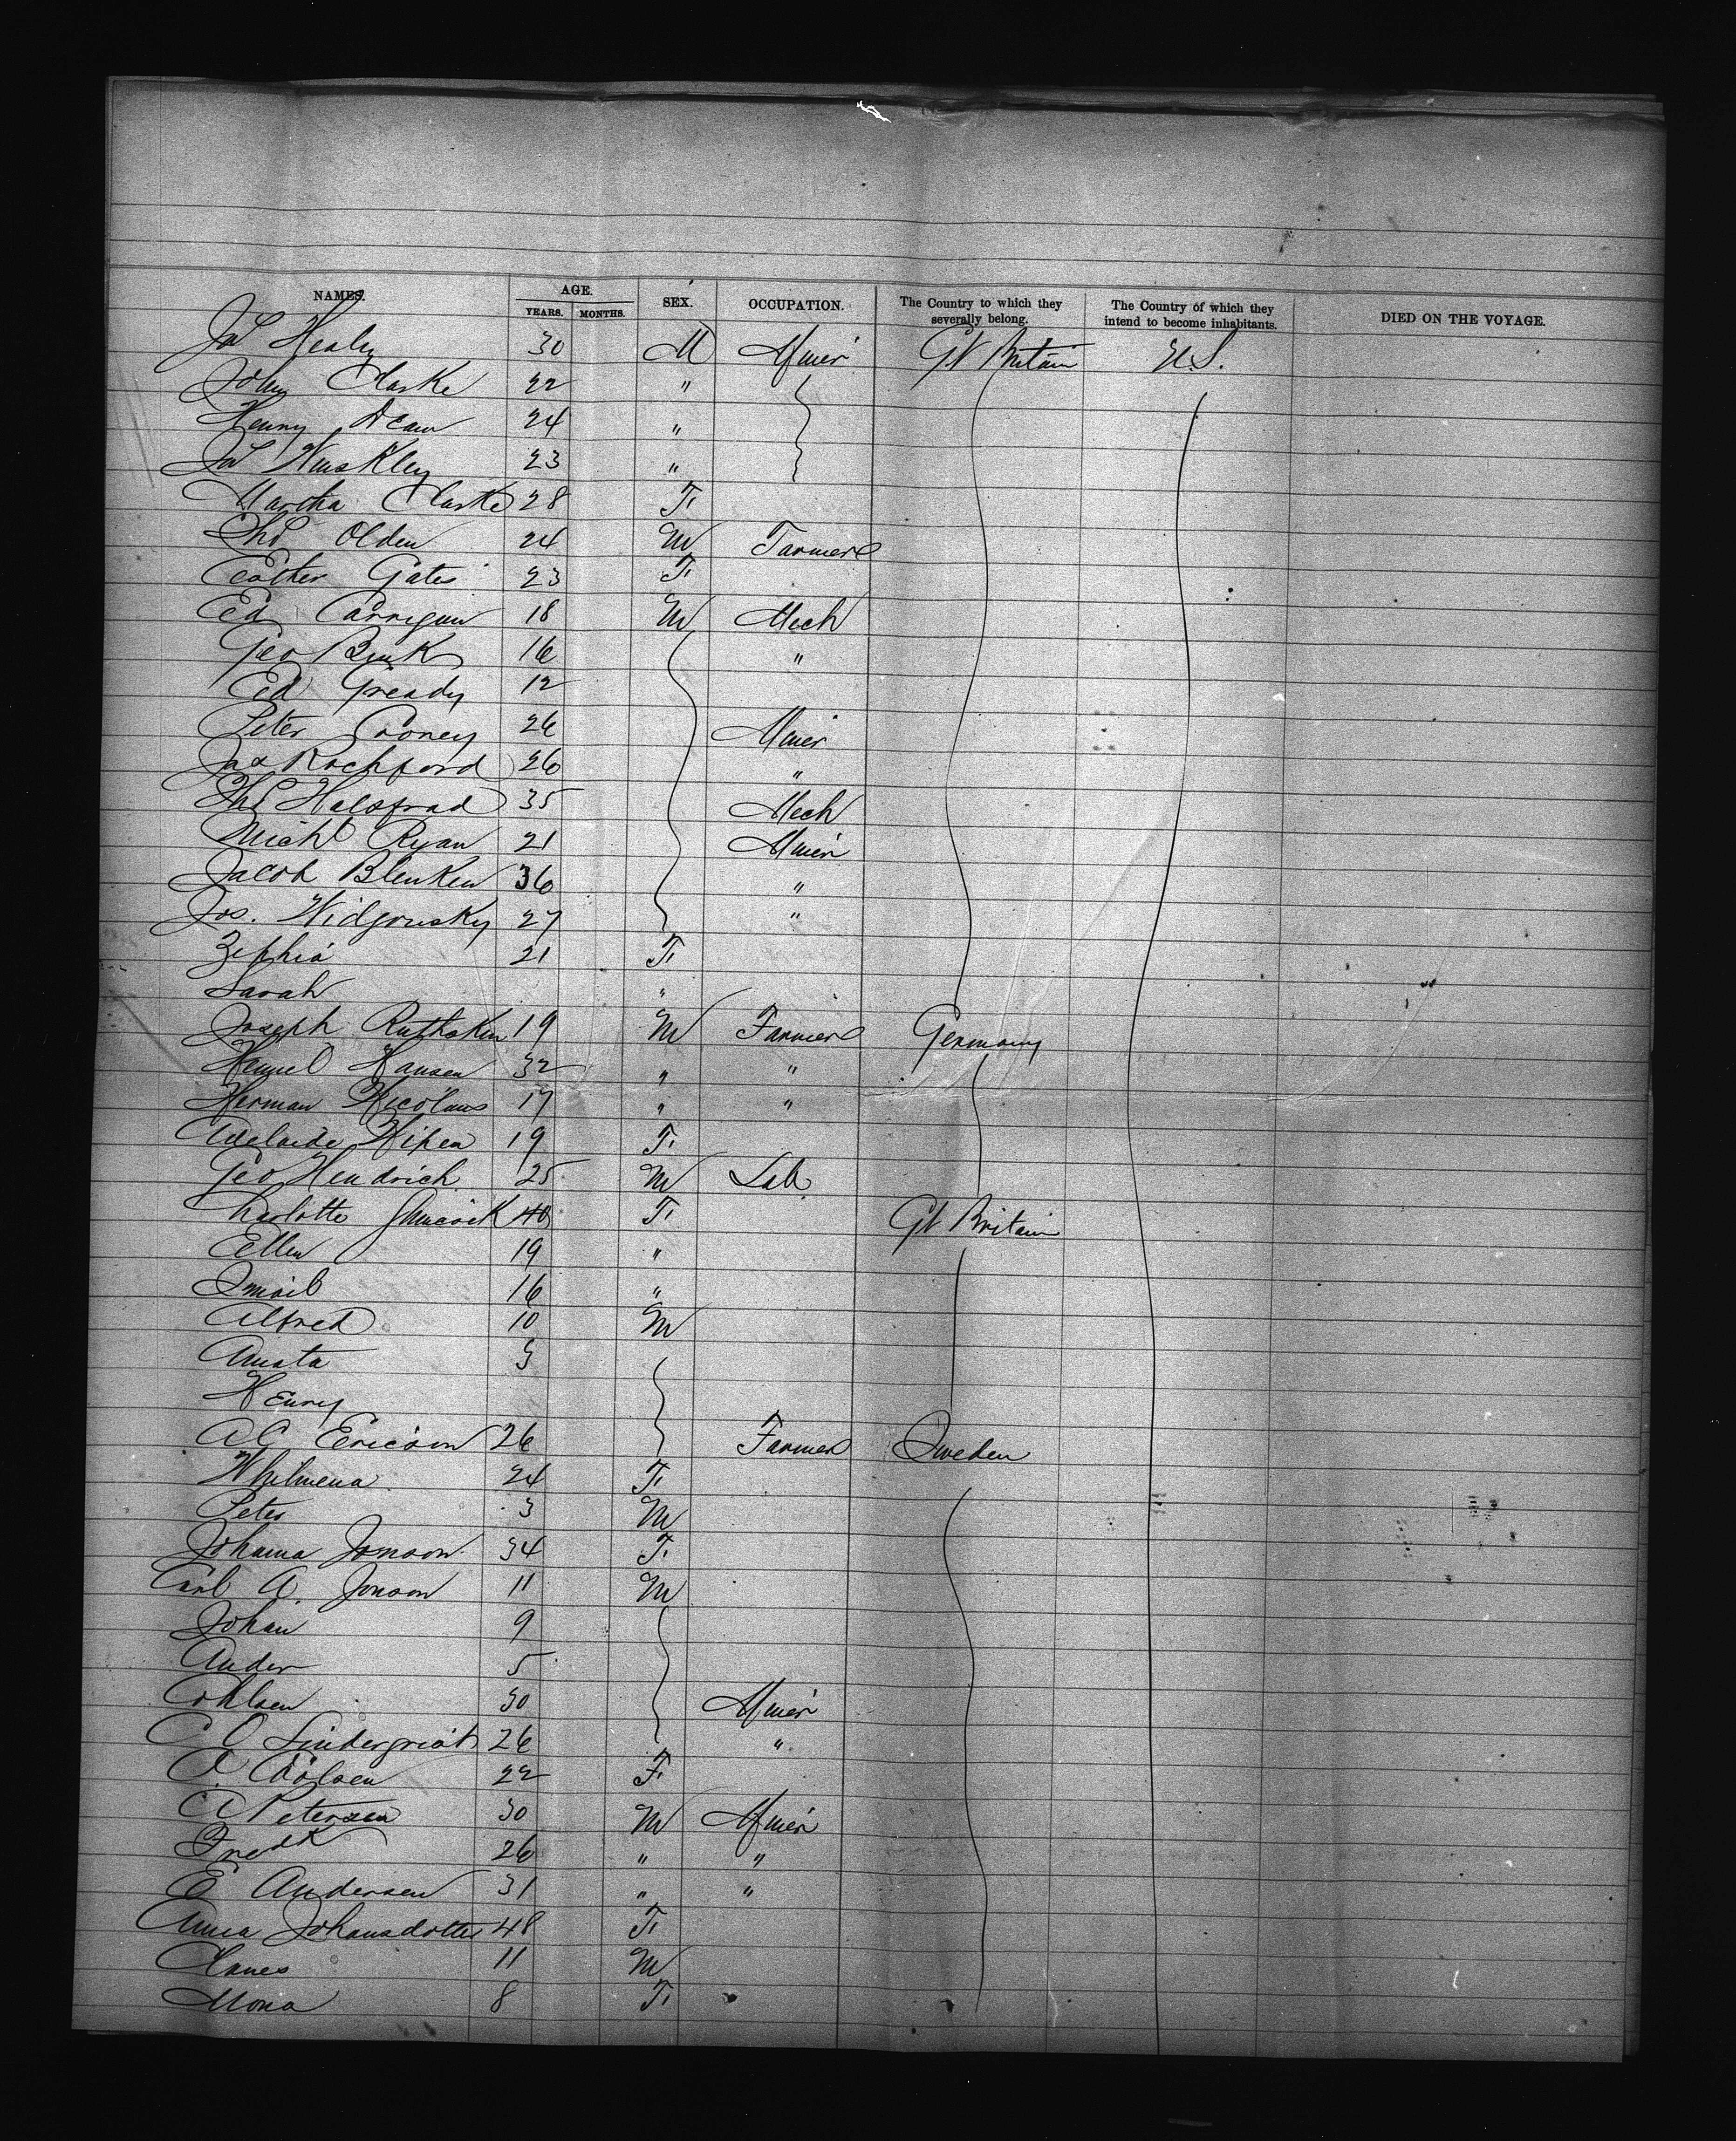 NAMES. AGE. SEX. OCCUPATION. The Country to which they severally belong. The Country of which they intend to become inhabitants. DIED ON THE VOYAGE.
YEARS. MONTHS.
Jas Healy 30 M Miner Gt Britain U.S.
John Clarke 22 "
Henny Dean 24 "
Jas 23 "
Martha Clarke 28 F.
Thos Olden 24 M Farmer
Esther Gates 23 F.
Ed Carrigan 18 M Mech
Geo 16 "
Ed Gready 12
Peter Cooney 26 Miner
Jas Rochford 26 "
Thos 35 Mech
Michl Ryan 21 Miner
Jacob Blenken 36 "
Jos. Widgousky 27 "
Zephia 21 F.
Sarah "
Joseph 19 M Farmer Germany
Hansen 32 " "
Herman Nicolaus 17 " "
Adelaide 19 F.
Geo Hendrich 25 M Lab
Charlotte F. Gt Britain
Ellen 19 "
16 "
Alfred 10 M
3
Henry
A C Ericson 26 Farmer Sweden
Whilmena 24 F.
Peter 3 M
Johanna Jonson 34 F.
Carl A. Jonson 11 M
Johan 9
Ander 5
30 Miner
26 "
22 F.
A Petersen 30 M Miner
Fredk 26 " "
E Andersen 31 " "
Anna Johansdotter 48 F.
11 M
Mona 8 F.